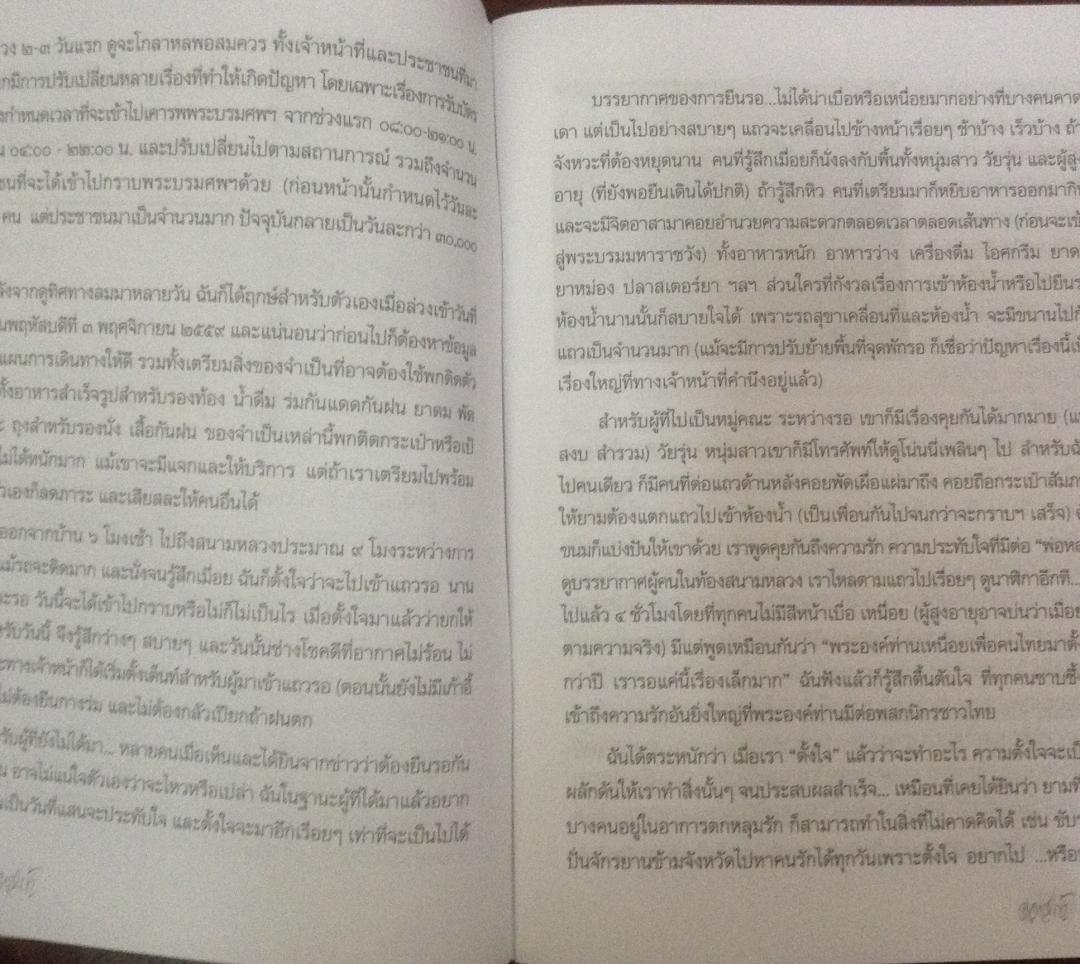 วง ๒-๓ วันแรก ดูจะโกลาหลพอสมควร ทั้งเจ้าหน้าที่และประชาชนที่มา
กมีการปรับเปลี่ยนหลายเรื่องที่ทำให้เกิดปัญหา โดยเฉพาะเรื่องการรับบัตร
งกำหนดเวลาที่จะเข้าไปเคารพพระบรมศพฯ จากช่วงแรก ๐๘:๐๐-๒๑:๐๐ น.
น ๐๔:๐๐ - ๒๒:๐๐ น. และปรับเปลี่ยนไปตามสถานการณ์ รวมถึงจำนวน
ชนที่จะได้เข้าไปกราบพระบรมศพฯด้วย (ก่อนหน้านั้นกำหนดไว้วันละ
คน แต่ประชาชนมาเป็นจำนวนมาก ปัจจุบันกลายเป็นวันละกว่า ๓๐,๐๐๐
ังจากดูทิศทางลมมาหลายวัน ฉันก็ได้ฤกษ์สำหรับตัวเองเมื่อล่วงเข้าวันที่
นพฤหัสบดีที่ ๓ พฤศจิกายน ๒๕๕๙ และแน่นอนว่าก่อนไปก็ต้องหาข้อมูล
แผนการเดินทางให้ดี รวมทั้งเตรียมสิ่งของจำเป็นที่อาจต้องใช้พกติดตัว
ั้งอาหารสำเร็จรูปสำหรับรองท้อง น้ำดื่ม ร่มกันแดดกันฝน ยาดม พัด
ะ ถุงสำหรับรองนั่ง เสื้อกันฝน ของจำเป็นเหล่านี้พกติดกระเป๋าหรือเป้
ไม่ได้หนักมาก แม้เขาจะมีแจกและให้บริการ แต่ถ้าเราเตรียมไปพร้อม
ัวเองก็ลดภาระ และเสียสละให้คนอื่นได้
ออกจากบ้าน ๖ โมงเช้า ไปถึงสนามหลวงประมาณ ๙ โมงระหว่างการ
แม้รถจะติดมาก และนั่งจนรู้สึกเมื่อย ฉันก็ตั้งใจว่าจะไปเข้าแถวรอ นาน
ะรอ วันนี้จะได้เข้าไปกราบหรือไม่ก็ไม่เป็นไร เมื่อตั้งใจมาแล้วว่ายกให้
รับวันนี้ จึงรู้สึกว่างๆ สบายๆ และวันนั้นช่างโชคดีที่อากาศไม่ร้อน ไม่
ะทางเจ้าหน้าก็ได้เริ่มตั้งเต็นท์สำหรับผู้มาเข้าแถวรอ (ตอนนั้นยังไม่มีเก้าอี้
ไม่ต้องยืนกางร่ม และไม่ต้องกลัวเปียกถ้าฝนตก
รับผู้ที่ยังไม่ได้มา... หลายคนเมื่อเห็นและได้ยินจากข่าวว่าต้องยืนรอกัน
น อาจไม่แน่ใจตัวเองว่าจะไหวหรือเปล่า ฉันในฐานะผู้ที่ได้มาแล้วอยาก
เป็นวันที่แสนจะประทับใจ และตั้งใจจะมาอีกเรื่อยๆ เท่าที่จะเป็นไปได้
บรรยากาศของการยืนรอ...ไม่ได้น่าเบื่อหรือเหนื่อยมากอย่างที่บางคนคาด
เดา แต่เป็นไปอย่างสบายๆ แถวจะเคลื่อนไปข้างหน้าเรื่อยๆ ช้าบ้าง เร็วบ้าง ถ้า
จังหวะที่ต้องหยุดนาน คนที่รู้สึกเมื่อยก็นั่งลงกับพื้นทั้งหนุ่มสาว วัยรุ่น และผู้สูง
อายุ (ที่ยังพอยืนเดินได้ปกติ) ถ้ารู้สึกหิว คนที่เตรียมมาก็หยิบอาหารออกมากิน
และจะมีจิตอาสามาคอยอำนวยความสะดวกตลอดเวลาตลอดเส้นทาง (ก่อนจะเข้
สู่พระบรมมหาราชวัง) ทั้งอาหารหนัก อาหารว่าง เครื่องดื่ม ไอศกรีม ยาด
ยาหม่อง ปลาสเตอร์ยา ฯลฯ ส่วนใครที่กังวลเรื่องการเข้าห้องน้ำหรือไปยืนร
ห้องน้ำนานนั้นก็สบายใจได้ เพราะรถสุขาเคลื่อนที่และห้องน้ำ จะมีขนานไปกั
แถวเป็นจำนวนมาก (แม้จะมีการปรับย้ายพื้นที่จุดพักรอ ก็เชื่อว่าปัญหาเรื่องนี้เป็
เรื่องใหญ่ที่ทางเจ้าหน้าที่คำนึงอยู่แล้ว)
สำหรับผู้ที่ไปเป็นหมู่คณะ ระหว่างรอ เขาก็มีเรื่องคุยกันได้มากมาย (แ
สงบ สำรวม) วัยรุ่น หนุ่มสาวเขาก็มีโทรศัพท์ให้ดูโน่นนี่เพลินๆ ไป สำหรับฉั
ไปคนเดียว ก็มีคนที่ต่อแถวด้านหลังคอยพัดเผื่อแผ่มาถึง คอยถือกระเป๋าสัมภ
ให้ยามต้องแตกแถวไปเข้าห้องน้ำ (เป็นเพื่อนกันไปจนกว่าจะกราบฯ เสร็จ)
ขนมก็แบ่งปันให้เขาด้วย เราพูดคุยกันถึงความรัก ความประทับใจที่มีต่อ "พ่อหล
ดูบรรยากาศผู้คนในท้องสนามหลวง เราไหลตามแถวไปเรื่อยๆ ดูนาฬิกาอีกที...
ไปแล้ว ๔ ชั่วโมงโดยที่ทุกคนไม่มีสีหน้าเบื่อ เหนื่อย (ผู้สูงอายุอาจบ่นว่าเมื่อย
ตามความจริง) มีแต่พูดเหมือนกันว่า "พระองค์ท่านเหนื่อยเพื่อคนไทยมาตั้
กว่าปี เรารอแค่นี้เรื่องเล็กมาก" ฉันฟังแล้วก็รู้สึกตื้นตันใจ ที่ทุกคนซาบซึ้
เข้าถึงความรักอันยิ่งใหญ่ที่พระองค์ท่านมีต่อพสกนิกรชาวไทย
ฉันได้ตระหนักว่า เมื่อเรา "ตั้งใจ" แล้วว่าจะทำอะไร ความตั้งใจจะเป็
ผลักดันให้เราทำสิ่งนั้นๆ จนประสบผลสำเร็จ... เหมือนที่เคยได้ยินว่า ยามที
บางคนอยู่ในอาการตกหลุมรัก ก็สามารถทำในสิ่งที่ไม่คาดคิดได้ เช่น ขับร
ปั่นจักรยานข้ามจังหวัดไปหาคนรักได้ทุกวันเพราะตั้งใจ อยากไป ...หรือ